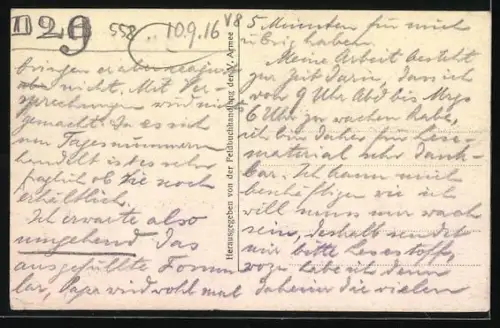 D29
558
10.9.16
V8
bringen er aber
nicht. Mit Ver-
sprechungen wird nichts
gemacht. Da es sich
um Tagesnummern
handelt ist es sehr
fraglich ob Sie noch
erhältlich.
Ich erwarte also
umgehend das
ausgefüllte Formu
lar, Papa wird wohl mal
Herausgegeben von der Feldbuchhandlung der V. Armee
5 Minuten für mich
übrig haben.
Meine Arbeit besteht
zur Zeit darin, dass ich
von 9 Uhr Abd bis Mrgs
6 Uhr zu wachen habe,
ich bin daher für Lese-
material sehr dank-
bar. Ich kann mich
beschäftigen wie ich
will muss nur wach
sein, deshalb sendet
mir bitte Lesestoff,
wozu habe ich denn
daheim die vielen